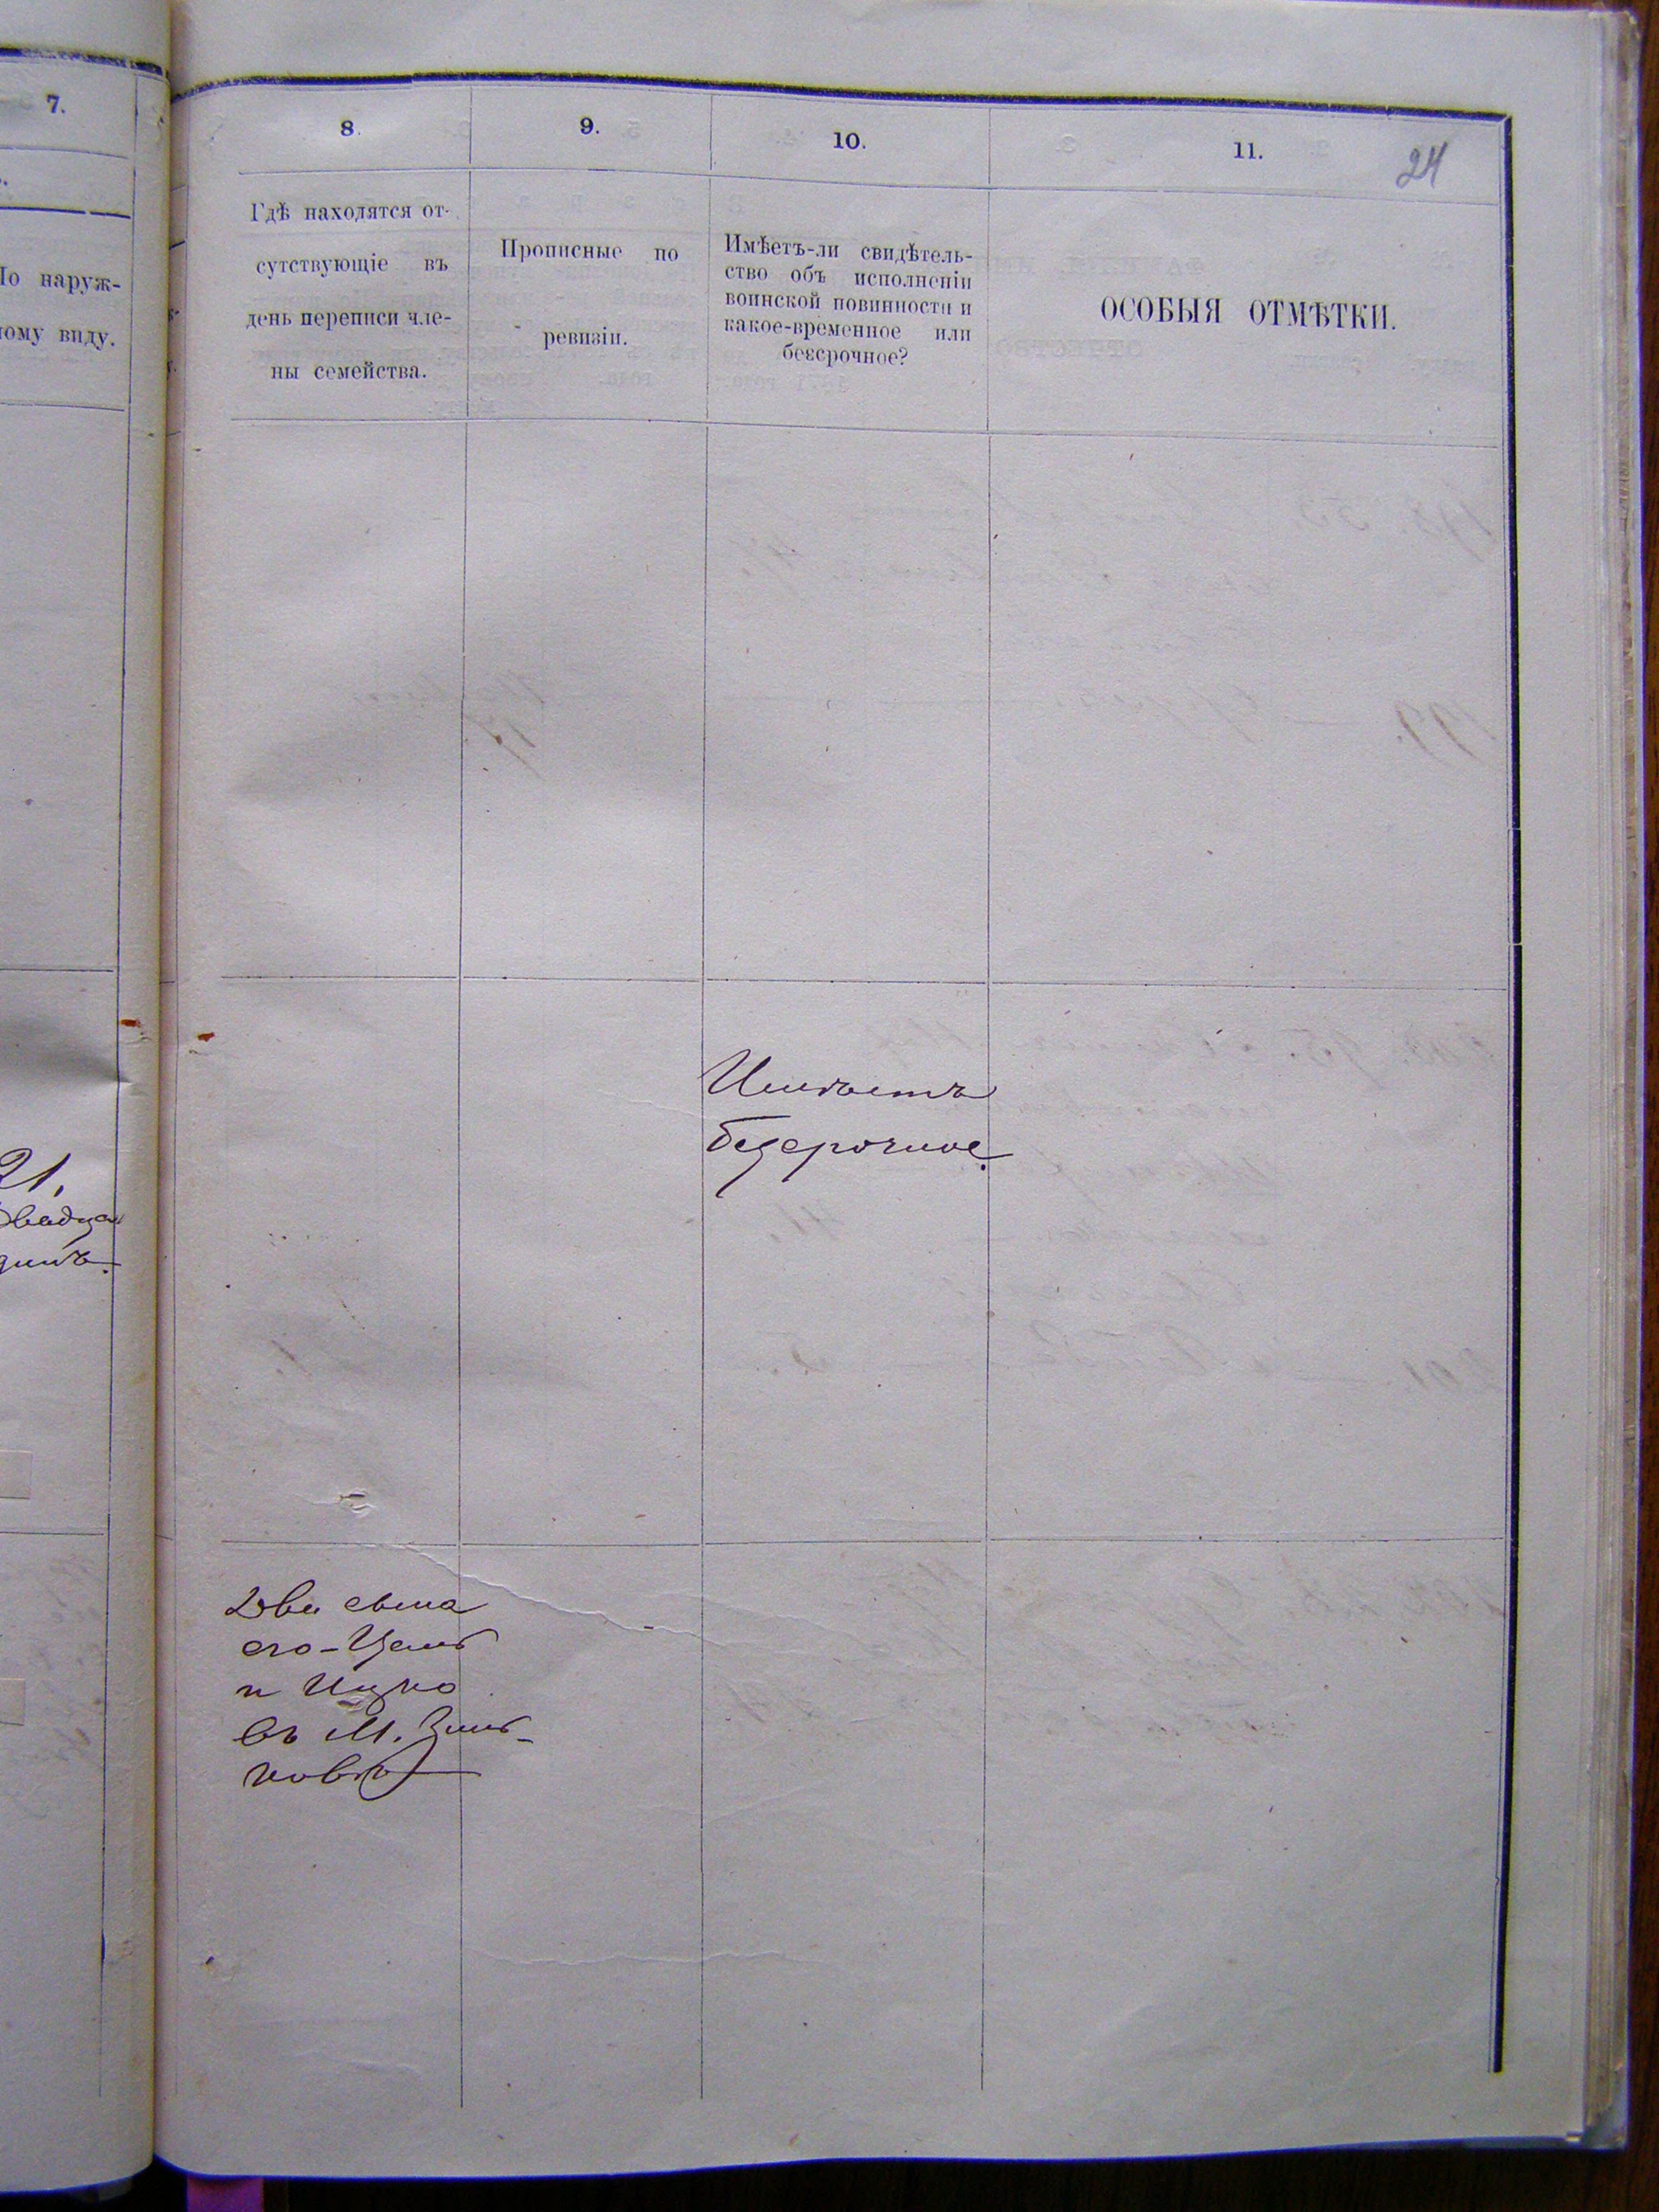 7.
8.
9.
10.
11.
24
По наруж-
ному виду.
Гдѣ находятся от-
сутствующіе въ
день переписи чле-
ны семейства.
Прописные по
ревизіи.
Имѣетъ-ли свидѣтель-
ство объ исполненіи
воинской повинности и
какое-временное или
безсрочное?
ОСОБЫЯ ОТМѢТКИ.
Имѣетъ
безсрочное.
21.
Два сына
его-
и Ицко
въ М. Зинь-
ковѣ